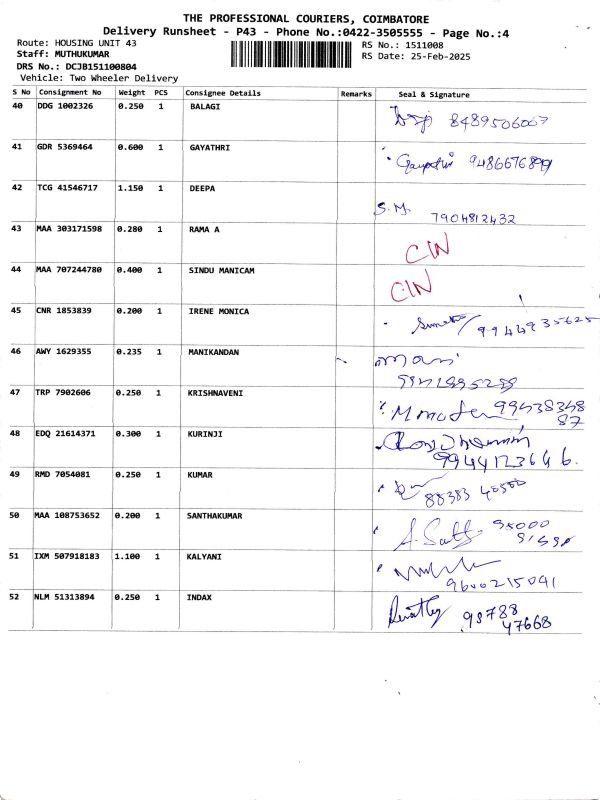 THE PROFESSIONAL COURIERS, COIMBATORE
Delivery Runsheet - P43 - Phone No.:0422-3505555 - Page No.:4
Route: HOUSING UNIT 43
RS No.: 1511008
Staff: MUTHUKUMAR
RS Date: 25-Feb-2025
DRS No.: DCJB151100804
Vehicle: Two Wheeler Delivery
S No Consignment No Weight PCS Consignee Details Remarks Seal & Signature
40 DDG 1002326 0.250 1 BALAGI
8489506067
41 GDR 5369464 0.600 1 GAYATHRI
Gayathri
42 TCG 41546717 1.150 1 DEEPA
S.M. 7904812432
43 MAA 303171598 0.280 1 RAMA A
CIN
44 MAA 707244780 0.400 1 SINDU MANICAM
CIN
45 CNR 1853839 0.200 1 IRENE MONICA
9944935625
46 AWY 1629355 0.235 1 MANIKANDAN
Mani
47 TRP 7902606 0.250 1 KRISHNAVENI
99438348
87
48 EDQ 21614371 0.300 1 KURINJI
9944123646.
49 RMD 7054081 0.250 1 KUMAR
88383
50 MAA 108753652 0.200 1 SANTHAKUMAR
98000
51 IXM 507918183 1.100 1 KALYANI
9600215041
52 NLM 51313894 0.250 1 INDAX
98788
47668